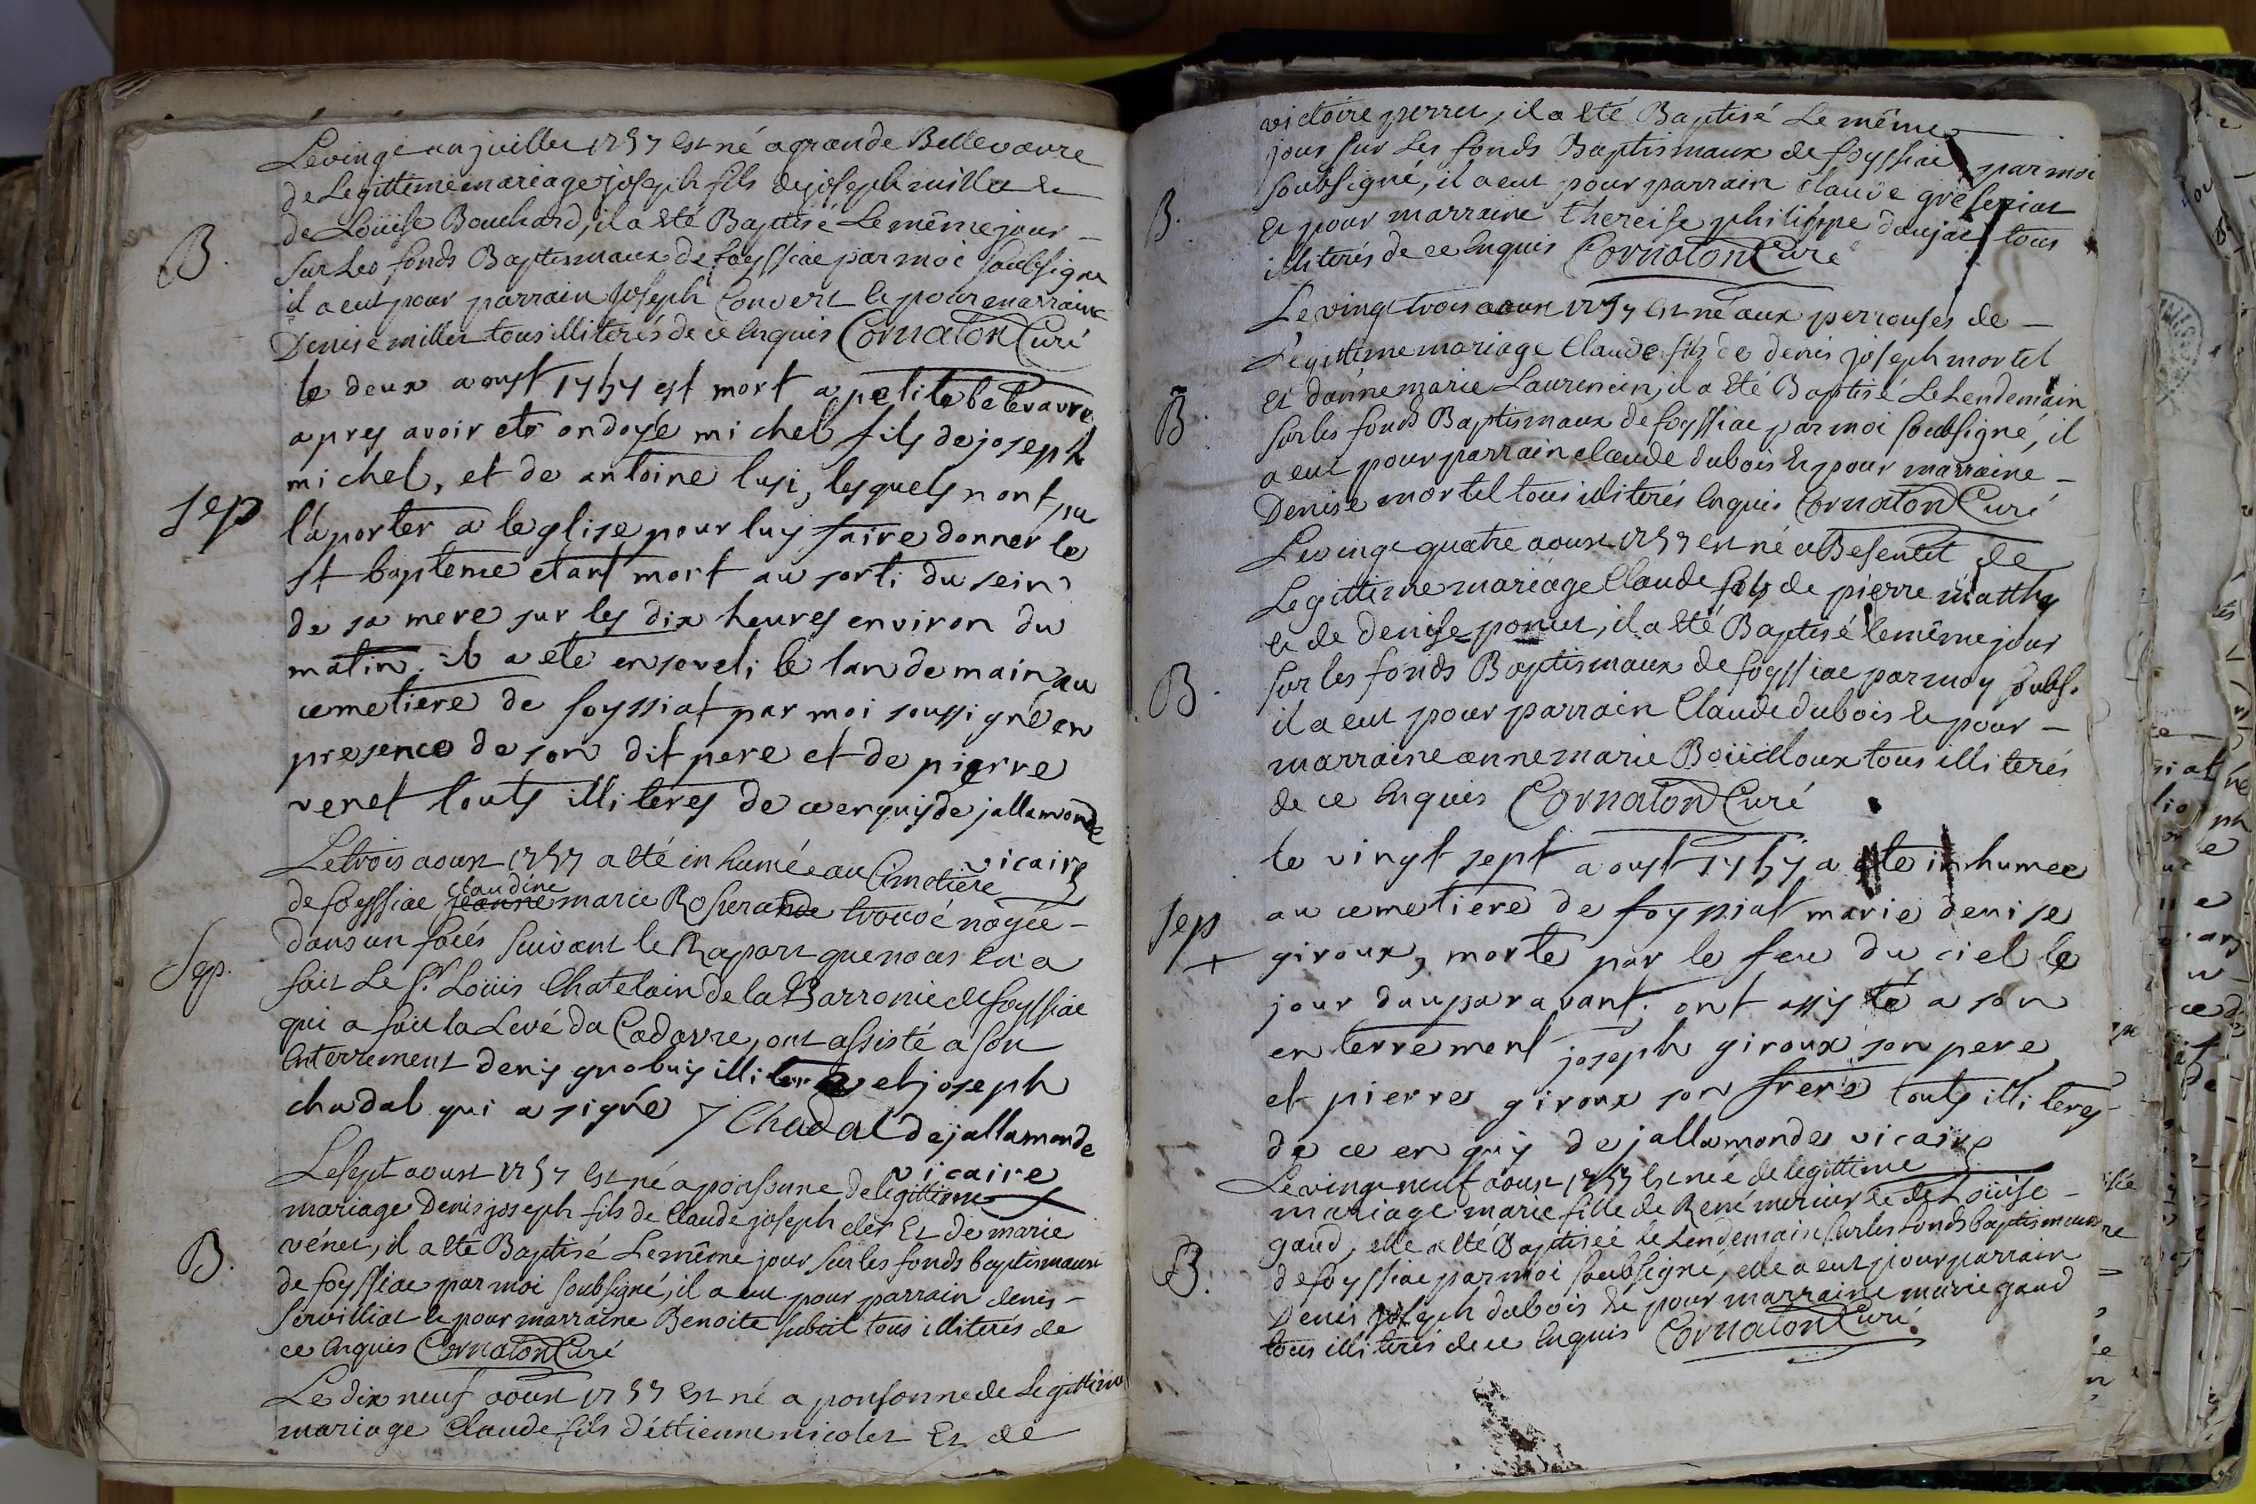 Le vingt un juillet 1757 est né a grande Bellevavre
de Legittime mariage joseph fils de joseph millet et
de Loüise Bouchard, il a eté Baptisé Le même jour –
B.
sur Les fonds Baptismaux de foyssiat par moi soubsigné
il a eut pour parrain joseph Convert et pour marraine
Denise millet tous illiterés de ce enquis Cornaton Curé
le deux aoust 1757 est mort a petite belevavre
apres avoir ete ondoyé michel fils de joseph
michel, et de antoine lusi, lesquels nont pu
Sep
l'aporter a leglise pour luy faire donner le
st bapteme etant mort au sorti du sein
de sa mere sur les dix heures environ du
matin. il a ete enseveli le landemain au
cemetiere de foyssiat par moi soussigné en
presence de son dit pere et de pierre
venet touts illiteres de ce enquis dejallamonde
vicaire
Le trois aoust 1757 a eté inhumée au Cimetière
de foyssiat jeanne claudine marie Roserande trouvé noÿée –
dans un fossés suivant le Raport que nous en a
Sep.
fait Le Sr. Loüis Chatelain de la Barronie de foyssiat
qui a fait la Levé du Cadavre, ont assisté a son
Enterrement denis grobuis illitere et joseph
chadal qui a signé J Chadal dejallamonde
vicaire
Le sept aoust 1757 est né a ponsonne de legittime
mariage Denis joseph fils de Claude joseph cler Et de marie
vénet, il a eté Baptisé Le même jour sur les fonds baptismaux
B.
de foyssiat par moi soubsigné, il a eut pour parrain denis –
servilliat et pour marraine Benoite subtil tous illiterés de
ce enquis Cornaton Curé
Le dix neuf aoust 1757 est né a ponsonne de Legittime
mariage Claude fils d'éttienne nicolet Et de
victoire perret, il a eté Baptisé Le même –
jour sur Les fonds Baptismaux de foyssiat par moi
B.
soubsigné, il a eut pour parrain claude greseriat
Et pour marraine thereise philippe daujat tous
illiterés de ce enquis Cornaton Curé
Le vingt trois aoust 1757 est né aux perrouses de –
Légittime mariage Claude fils de denis joseph mortel
Et danne marie Laurencin, il a eté Baptisé Le Lendemain
B.
sur les fonds Baptismaux de foyssiat par moi soubsigné, il
a eut pour parrain claude dubois Et pour marraine –
Denise mortel tous illiterés enquis Cornaton Curé
Le vingt quatre aoust 1757 est né a Besentet de
Legittime mariage Claude fils de pierre matthy
et de denise ponut, il a eté Baptisé le même jour
B.
sur les fonds Baptismaux de foyssiat par moy soubs.
il a eut pour parrain Claude dubois Et pour –
marraine anne marie Boüilloux tous illiterés
de ce enquis Cornaton Curé
le vingt sept aoust 1757 a ete inhumee
Sep
au cemetiere de foyssiat marie denise
+
giroux, morte par le feu du ciel le
jour dauparavant. ont assisté a son
enterrement joseph giroux son pere
et pierre giroux son frere touts illiteres
de ce enquis dejallamonde vicaire
Le vingt neuf aoust 1757 est née de legittime
mariage marie fille de René mercier et de Loüise –
gaud, elle a eté Baptisée le Lendemain sur les fonds baptismaux
B.
de foyssiat par moi soubsigné, elle a eut pour parrain
Denis joseph dubois Et pour marraine marie gaud
tous illiterés de ce enquis Cornaton Curé